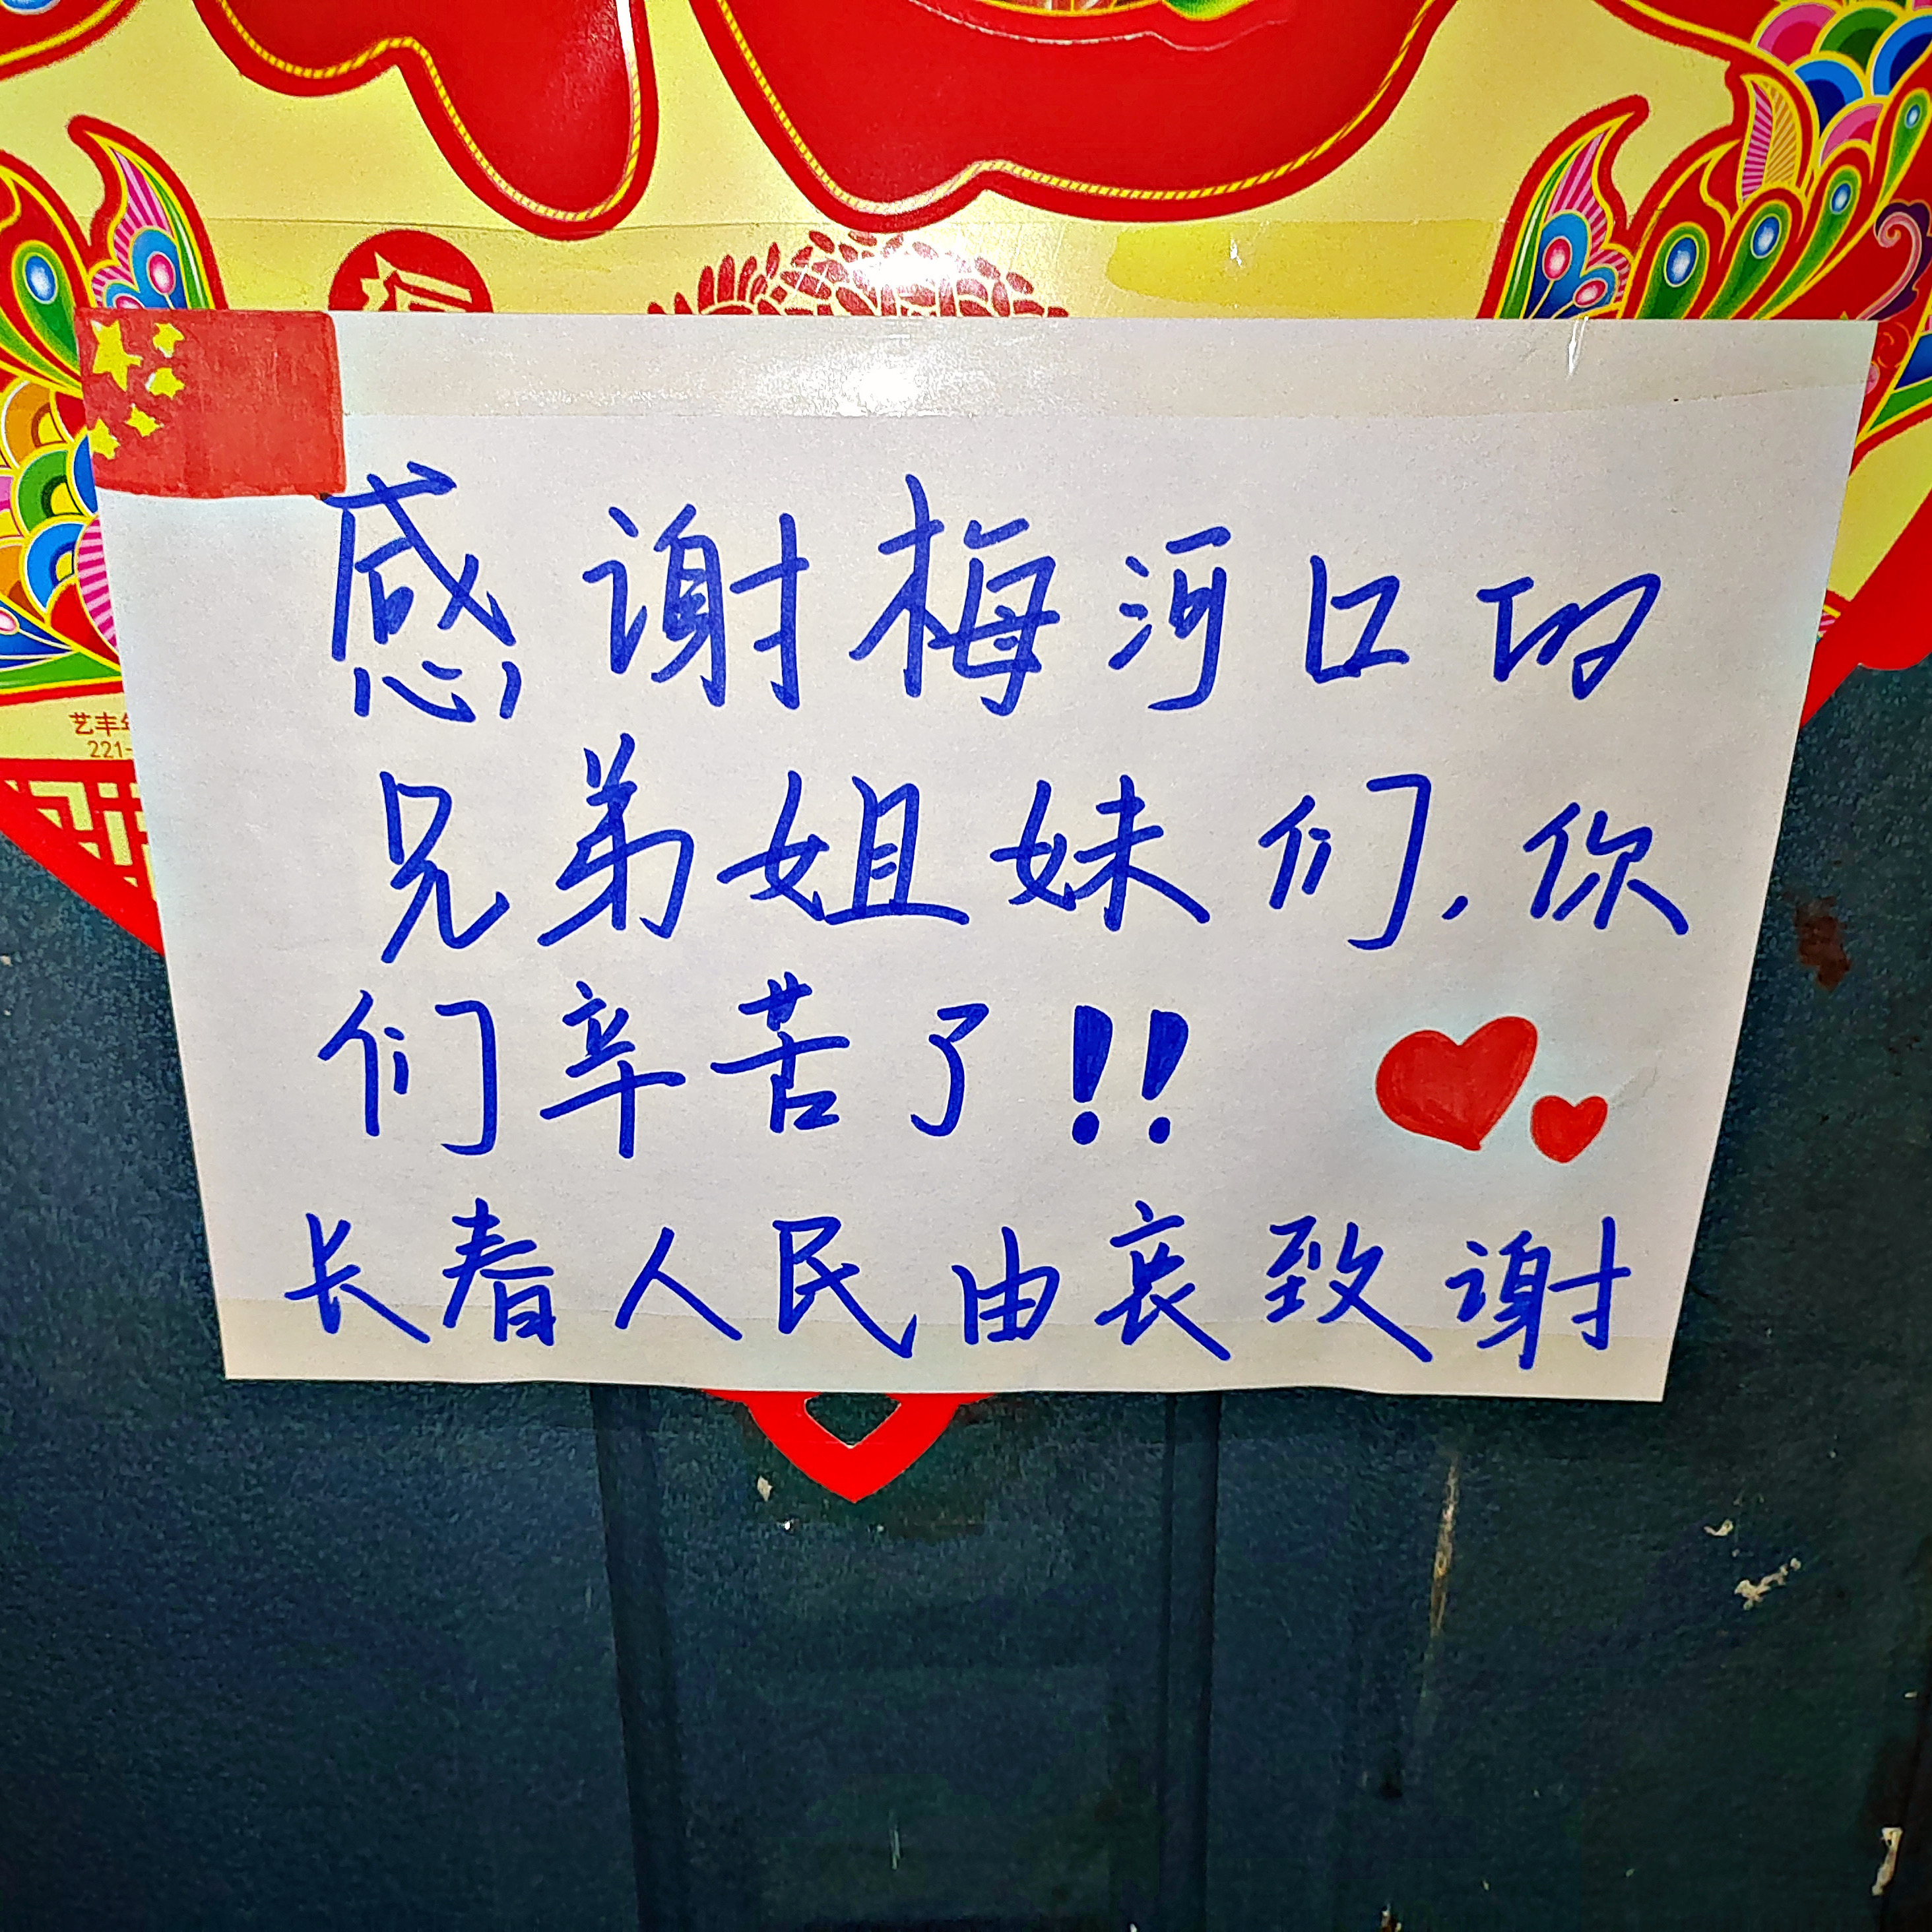 感谢梅河口的
兄弟姐妹们,你
们辛苦了!!
长春人民由衷致谢
艺丰年
221-